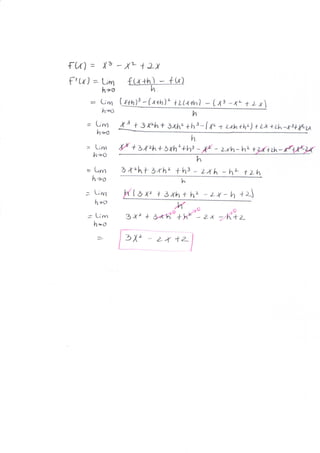 f(x) = x³ - x² + 2x
f'(x) = Lim h→0 f(x+h) - f(x) / h
= Lim h→0 (x+h)³ - (x+h)² + 2(x+h) - (x³ - x² + 2x) / h
= Lim h→0 x³ + 3x²h + 3xh² + h³ - (x² + 2xh + h²) + 2x + 2h - x³ + x² - 2x / h
= Lim h→0 x³ + 3x²h + 3xh² + h³ - x² - 2xh - h² + 2x + 2h - x³ + x² - 2x / h
= Lim h→0 3x²h + 3xh² + h³ - 2xh - h² + 2h / h
= Lim h→0 h(3x² + 3xh + h² - 2x - h + 2) / h
= Lim h→0 3x² + 3xh→0 + h²→0 - 2x - h→0 + 2
= 3x² - 2x + 2